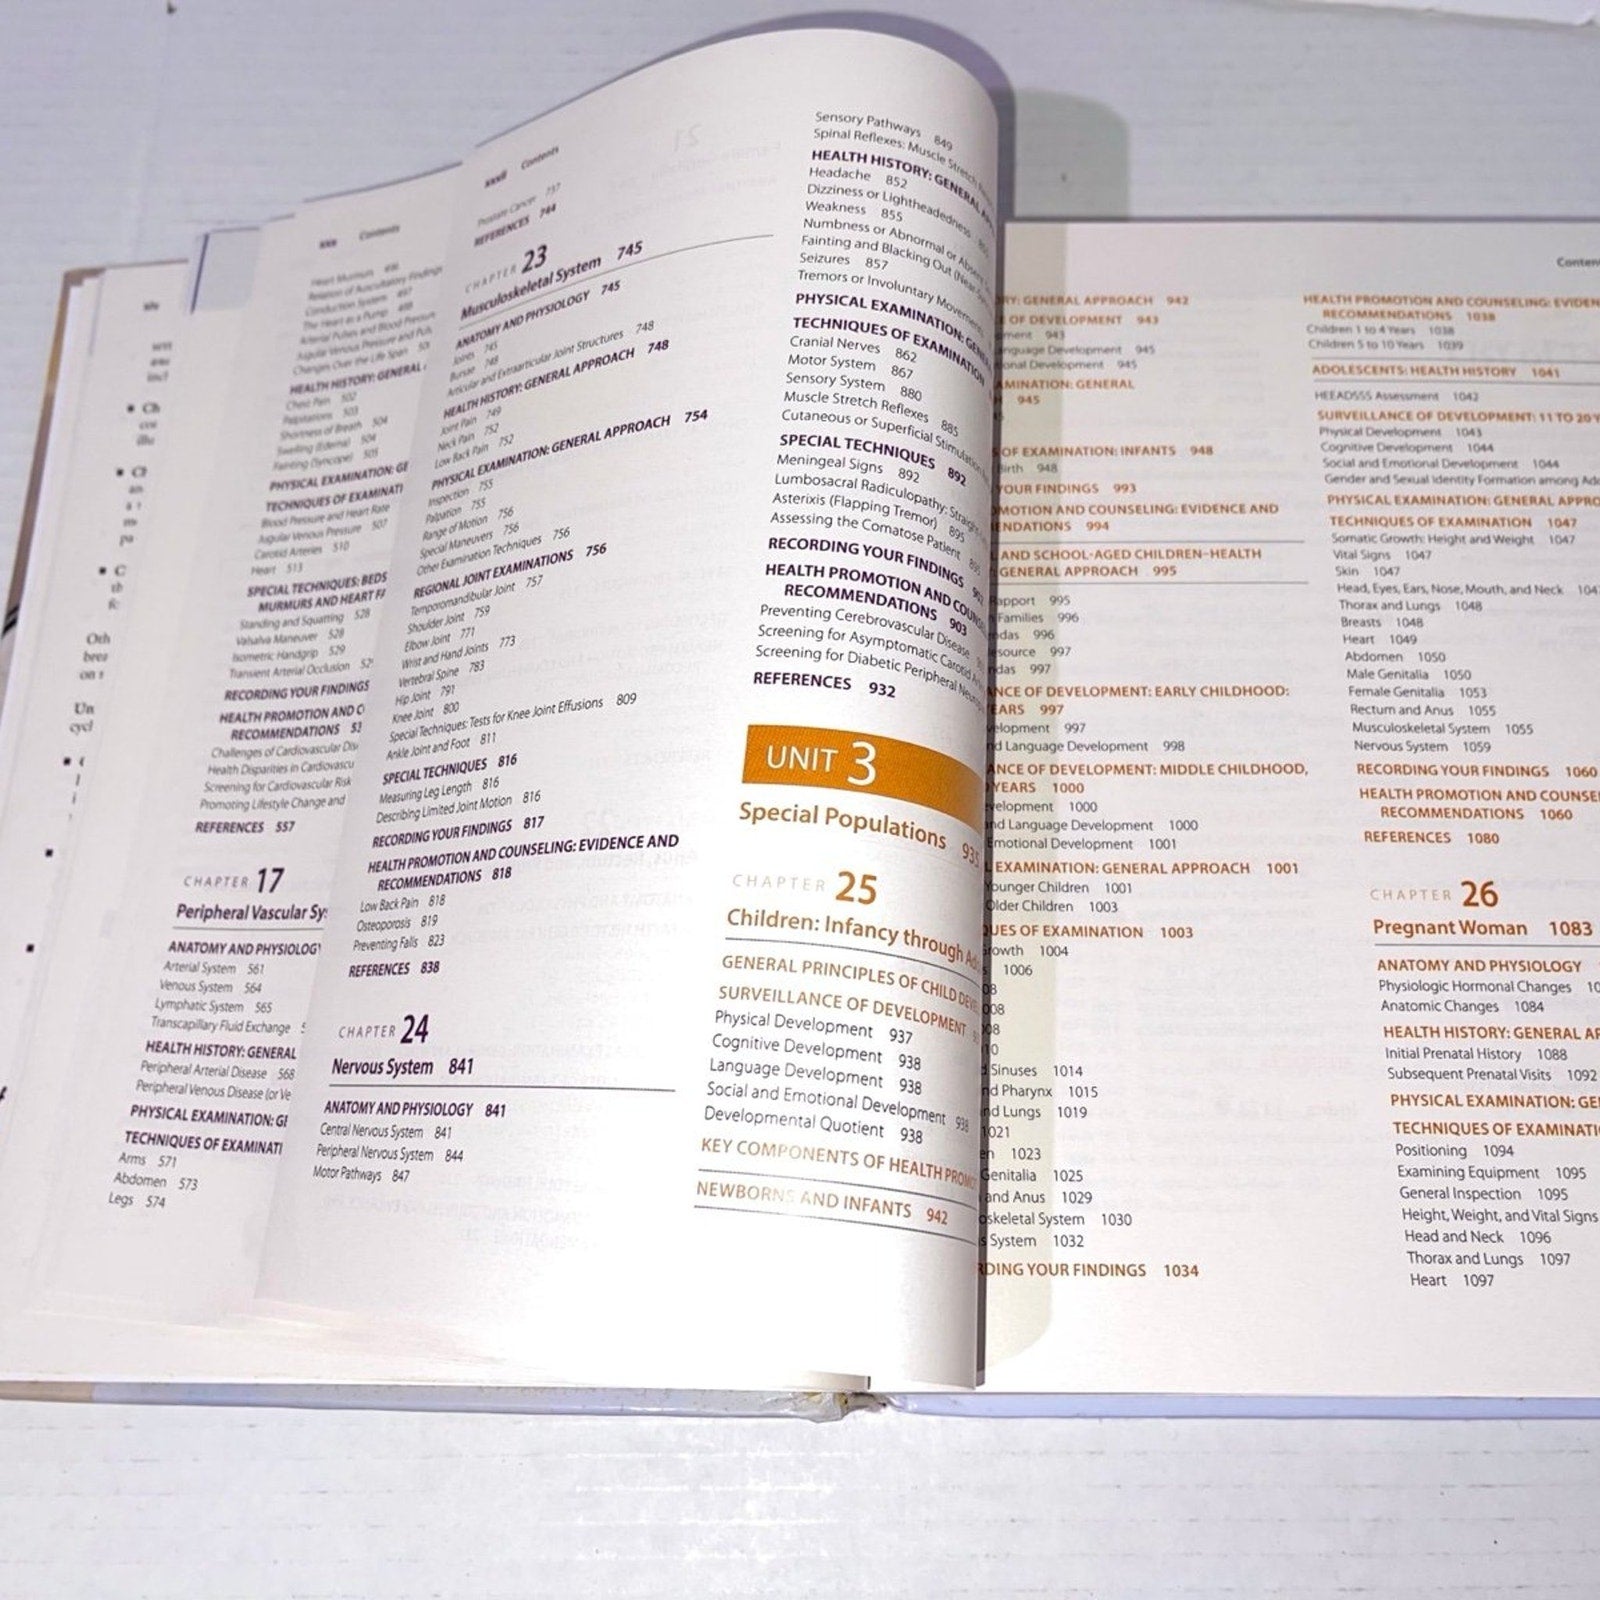 Contents
Heart Murmurs 496
Relation of Auscultatory Findings
Conduction System 497
The Heart as a Pump 499
Arterial Pulses and Blood Pressure
Jugular Venous Pressure and Puls
Changes Over the Life Span
HEALTH HISTORY: GENERAL
Chest Pain 502
Palpitations 503
Shortness of Breath 504
Swelling (Edema) 504
Fainting (Syncope) 505
PHYSICAL EXAMINATION: GE
TECHNIQUES OF EXAMINATI
Blood Pressure and Heart Rate
Jugular Venous Pressure 507
Carotid Arteries 510
Heart 513
SPECIAL TECHNIQUES: BEDS
MURMURS AND HEART F
Standing and Squatting 528
Valsalva Maneuver 528
Isometric Handgrip 529
Transient Arterial Occlusion 52
RECORDING YOUR FINDINGS
HEALTH PROMOTION AND C
RECOMMENDATIONS 53
Challenges of Cardiovascular Dis
Health Disparities in Cardiovascu
Screening for Cardiovascular Risk
Promoting Lifestyle Change and
REFERENCES 557
CHAPTER 17
Peripheral Vascular Sy
ANATOMY AND PHYSIOLOGY
Arterial System 561
Venous System 564
Lymphatic System 565
Transcapillary Fluid Exchange
HEALTH HISTORY: GENERAL
Peripheral Arterial Disease 568
Peripheral Venous Disease (or Ve
PHYSICAL EXAMINATION: GI
TECHNIQUES OF EXAMINATI
Arms 571
Abdomen 573
Legs 574
xxxii Contents
Prostate Cancer 737
REFERENCES 744
CHAPTER 23
Musculoskeletal System 745
ANATOMY AND PHYSIOLOGY 745
Joints 745
Bursae 748
Articular and Extraarticular Joint Structures 748
HEALTH HISTORY: GENERAL APPROACH 748
Joint Pain 749
Neck Pain 752
Low Back Pain 752
PHYSICAL EXAMINATION: GENERAL APPROACH 754
Inspection 755
Palpation 755
Range of Motion 756
Special Maneuvers 756
Other Examination Techniques 756
REGIONAL JOINT EXAMINATIONS 756
Temporomandibular Joint 757
Shoulder Joint 759
Elbow Joint 771
Wrist and Hand Joints 773
Vertebral Spine 783
Hip Joint 791
Knee Joint 800
Special Techniques: Tests for Knee Joint Effusions 809
Ankle Joint and Foot 811
SPECIAL TECHNIQUES 816
Measuring Leg Length 816
Describing Limited Joint Motion 816
RECORDING YOUR FINDINGS 817
HEALTH PROMOTION AND COUNSELING: EVIDENCE AND
RECOMMENDATIONS 818
Low Back Pain 818
Osteoporosis 819
Preventing Falls 823
REFERENCES 838
CHAPTER 24
Nervous System 841
ANATOMY AND PHYSIOLOGY 841
Central Nervous System 841
Peripheral Nervous System 844
Motor Pathways 847
Sensory Pathways 849
Spinal Reflexes: Muscle Stretch
HEALTH HISTORY: GENERAL A
Headache 852
Dizziness or Lightheadedness
Weakness 855
Numbness or Abnormal or Absent
Fainting and Blacking Out (Near
Seizures 857
Tremors or Involuntary Movements
PHYSICAL EXAMINATION: GEN
TECHNIQUES OF EXAMINATION
Cranial Nerves 862
Motor System 867
Sensory System 880
Muscle Stretch Reflexes 885
Cutaneous or Superficial Stimulation
SPECIAL TECHNIQUES 892
Meningeal Signs 892
Lumbosacral Radiculopathy: Straight
Asterixis (Flapping Tremor) 895
Assessing the Comatose Patient
RECORDING YOUR FINDINGS
HEALTH PROMOTION AND COUNS
RECOMMENDATIONS 903
Preventing Cerebrovascular Disease
Screening for Asymptomatic Carotid
Screening for Diabetic Peripheral Neur
REFERENCES 932
UNIT 3
Special Populations 935
CHAPTER 25
Children: Infancy through Ad
GENERAL PRINCIPLES OF CHILD DEVE
SURVEILLANCE OF DEVELOPMENT
Physical Development 937
Cognitive Development 938
Language Development 938
Social and Emotional Development 938
Developmental Quotient 938
KEY COMPONENTS OF HEALTH PROMOT
NEWBORNS AND INFANTS 942
RY: GENERAL APPROACH 942
OF DEVELOPMENT 943
ment 943
anguage Development 945
ional Development 945
AMINATION: GENERAL
945
OF EXAMINATION: INFANTS 948
Birth 948
YOUR FINDINGS 993
MOTION AND COUNSELING: EVIDENCE AND
ENDATIONS 994
AND SCHOOL-AGED CHILDREN–HEALTH
GENERAL APPROACH 995
Rapport 995
Families 996
das 996
esource 997
das 997
NCE OF DEVELOPMENT: EARLY CHILDHOOD:
EARS 997
velopment 997
nd Language Development 998
ANCE OF DEVELOPMENT: MIDDLE CHILDHOOD,
YEARS 1000
velopment 1000
nd Language Development 1000
Emotional Development 1001
EXAMINATION: GENERAL APPROACH 1001
Younger Children 1001
Older Children 1003
QUES OF EXAMINATION 1003
Growth 1004
1006
Sinuses 1014
nd Pharynx 1015
nd Lungs 1019
1021
en 1023
Genitalia 1025
and Anus 1029
oskeletal System 1030
s System 1032
RDING YOUR FINDINGS 1034
Conten
HEALTH PROMOTION AND COUNSELING: EVIDEN
RECOMMENDATIONS 1038
Children 1 to 4 Years 1038
Children 5 to 10 Years 1039
ADOLESCENTS: HEALTH HISTORY 1041
HEEADSSS Assessment 1042
SURVEILLANCE OF DEVELOPMENT: 11 TO 20 Y
Physical Development 1043
Cognitive Development 1044
Social and Emotional Development 1044
Gender and Sexual Identity Formation among Ado
PHYSICAL EXAMINATION: GENERAL APPRO
TECHNIQUES OF EXAMINATION 1047
Somatic Growth: Height and Weight 1047
Vital Signs 1047
Skin 1047
Head, Eyes, Ears, Nose, Mouth, and Neck 104
Thorax and Lungs 1048
Breasts 1048
Heart 1049
Abdomen 1050
Male Genitalia 1050
Female Genitalia 1053
Rectum and Anus 1055
Musculoskeletal System 1055
Nervous System 1059
RECORDING YOUR FINDINGS 1060
HEALTH PROMOTION AND COUNSE
RECOMMENDATIONS 1060
REFERENCES 1080
CHAPTER 26
Pregnant Woman 1083
ANATOMY AND PHYSIOLOGY
Physiologic Hormonal Changes 10
Anatomic Changes 1084
HEALTH HISTORY: GENERAL AP
Initial Prenatal History 1088
Subsequent Prenatal Visits 1092
PHYSICAL EXAMINATION: GE
TECHNIQUES OF EXAMINATI
Positioning 1094
Examining Equipment 1095
General Inspection 1095
Height, Weight, and Vital Signs
Head and Neck 1096
Thorax and Lungs 1097
Heart 1097